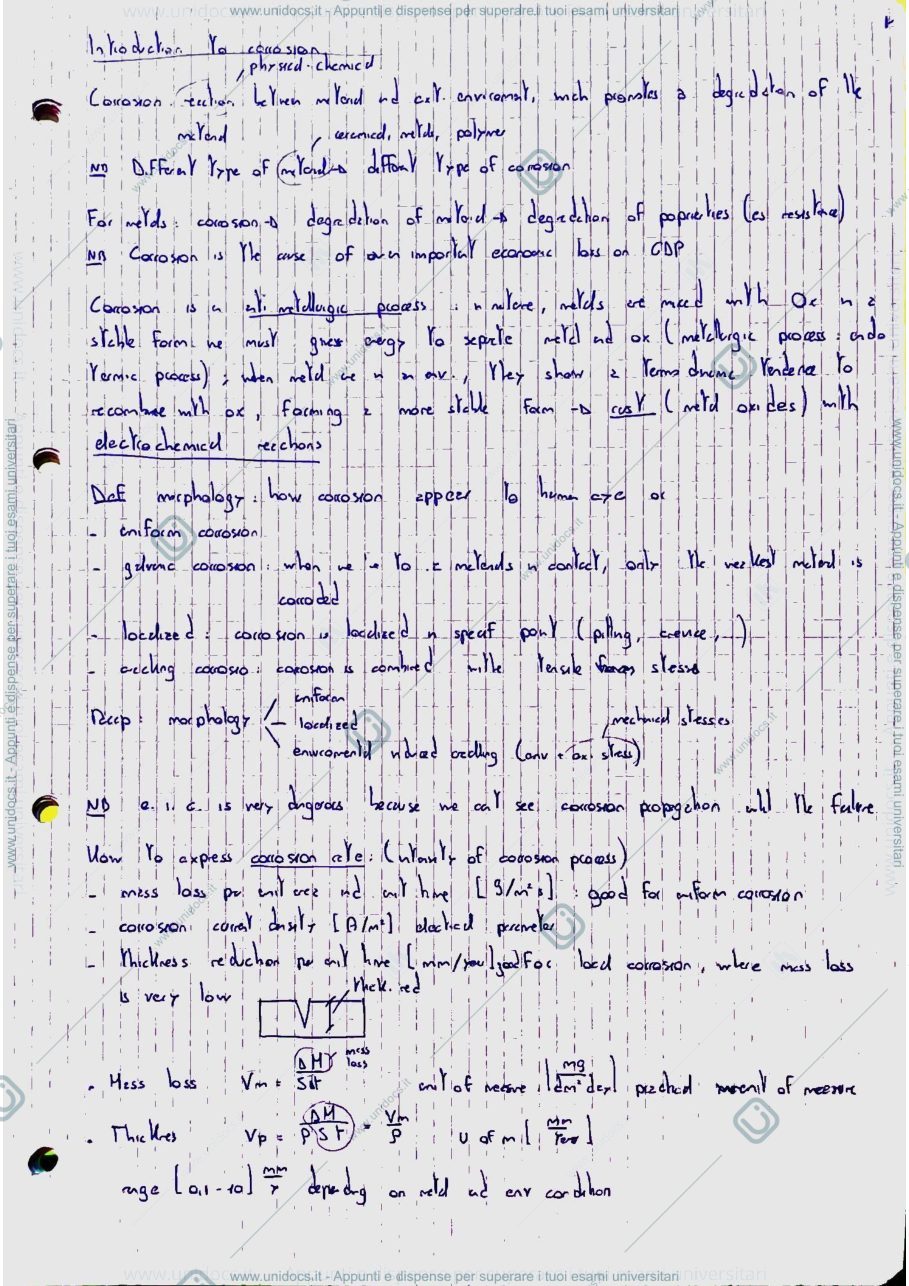 www.unidocs.it - Appunti e dispense per superare i tuoi esami universitari
Introduction to corrosion
physical-chemical
Corrosion: reaction between material and ext. enviroment, wich promotes a degradation of the
material
ceramical, metals, polymer
NB Different type of material → different type of corrosion
For metals: corrosion → degradation of material → degradation of poprierties (es resistance)
NB Corrosion is the cause of even important economic loss on GDP
Corrosion is an anti metallurgic process: in nature, metals are mixed with Ox in a
stable form: we must gives energy to seprate metal and ox (metallurgic process: endo
termic process); when metal are in an env., they show a termodinamic tendence to
recombine with ox, forming a more stable form → rust (metal oxides) with
electrochemical reactions
Def morphology: how corrosion appear to human eye or
- uniform corrosion
- galvanic corrosion: when we to materials in contact, only the weakest material is
corroded
- localized: corrosion is localized in specif point (pitting, crevice, ...)
- craking corrosio: corrosion is combined with tensile stress
Recap: morphology
uniform
localized
enviromental induced cracking (env + ox. stress)
mechanical stresses
NB e. i. c. is very dangerous because we can't see corrosion propagation until the failure
How to express corrosion rate: (intensity of corrosion process)
- mass loss per unit area and unit time [g/m² s]: good for uniform corrosion
- corrosion current density [A/m²] electrical parameter
- thickness reduction per unit time [mm/year] good for local corrosion, where mass loss
is very low
thick. red
mass loss
• Mass loss Vm = ΔM/St unit of measure [mg/dm² day] practical unit of measure
• Thicknes Vp = ΔM/ρSt = Vm/ρ U of m [mm/year]
range [0,1 - 10] mm/y depending on metal and env condition
www.unidocs.it - Appunti e dispense per superare i tuoi esami universitari